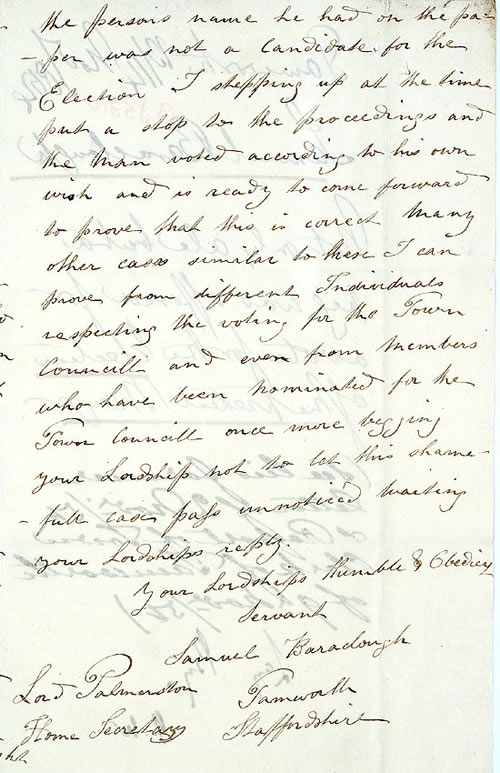 the persons name he had on the pa-
-per was not a candidate for the
Election I stepping up at the time
put a stop to the proceedings and
the man voted according to his own
wish and is ready to come forward
to prove that this is correct Many
other cases similar to these I can
prove from different Individuals
respecting the voting for the Town
Councill and even from Members
who have been nominated for the
Town Councill once more begging
your Lordship not to let this shame-
-full case pass unnoticed waiting
your Lordships reply.
Your Lordships Humble & Obedient
Servant
Samuel Baraclough
Lord Palmerston Tamworth
Home Secretary Staffordshire